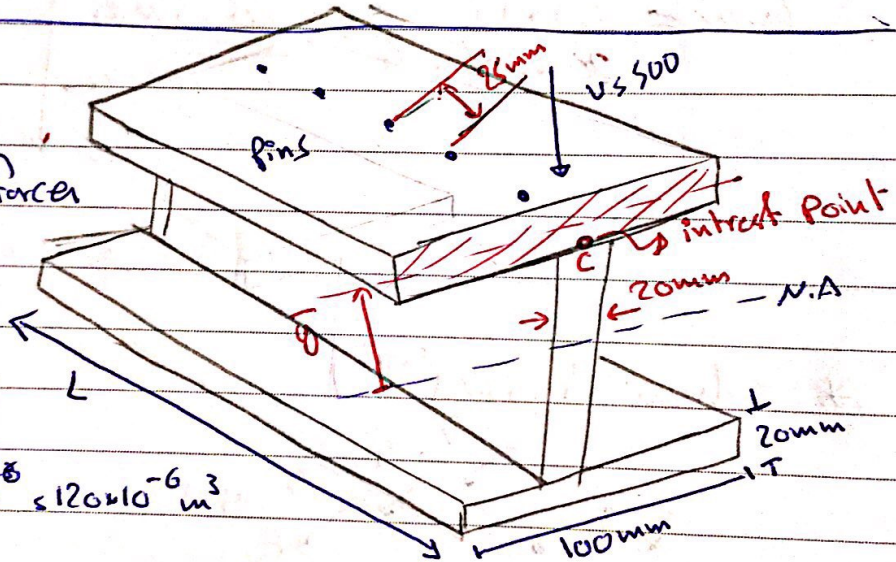 25mm
V=500
pins
forces
intrest point
C
20mm
N.A
ȳ
L
20mm
=120x10⁻⁶ m³
100mm